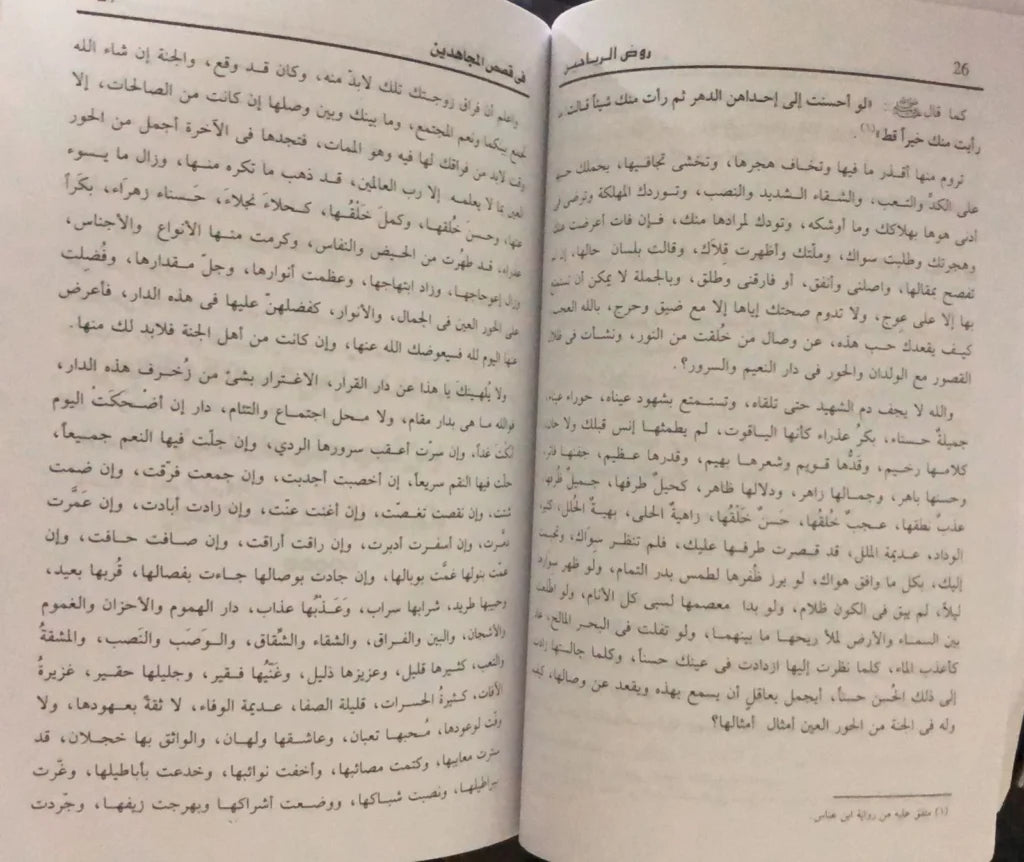 26
روض الرياحين
كما قال ﷺ: «لو أحسنت إلى إحداهن الدهر ثم رأت منك شيئاً قالت ما
رأيت منك خيراً قط»(١).
تروم منها أقذر ما فيها وتخاف هجرها، وتخشى تجافيها، يحملك حبها
على الكدِّ والتعب، والشقاء الشديد والنصب، وتوردك المهلكة وترضى فى
أدنى هوها بهلاكك وما أوشكه، وتودك لمرادها منك، فإن فات أعرضت عنك
وهجرتك وطلبت سواك، وملّتك وأظهرت قِلاك، وقالت بلسان حالها، إن لم
تفصح بمقالها، واصلنى وأنفق، أو فارقنى وطلق، وبالجملة لا يمكن أن تستمتع
بها إلا على عِوج، ولا تدوم صحتك إياها إلا مع ضيق وحرج، بالله العجب
كيف يقعدك حب هذه، عن وصال من خُلقت من النور، ونشأت فى ظلال
القصور مع الولدان والحور فى دار النعيم والسرور؟.
والله لا يجف دم الشهيد حتى تلقاه، وتستمتع بشهود عيناه، حوراء عيناء،
جميلةٌ حسناء، بكرٌ عذراء كأنها الياقوت، لم يطمثها إنس قبلك ولا جان،
كلامها رخيم، وقَدُّها قويم وشعرها بهيم، وقدرها عظيم، جفنها فاتر،
وحسنها باهر، وجمالها زاهر، ودلالها ظاهر، كحيلٌ طرفها، جميلٌ ظُرفها،
عذبٌ نطقها، عجبٌ خُلقُها، حَسنٌ خَلْقُها، زاهيةُ الحلى، بهيةُ الحُلل، كثيرة
الوداد، عديمة الملل، قد قصرت طرفها عليك، فلم تنظر سواك، وتحببت
إليك، بكل ما وافق هواك، لو يرز ظُفرها لطمس بدر التمام، ولو ظهر سوارها
ليلاً، لم يبق فى الكون ظلام، ولو بدا معصمها لسبى كل الأنام، ولو اطلعت
بين السماء والأرض لملأ ريحها ما بينهما، ولو تفلت فى البحر المالح، عاد
كأعذب الماء، كلما نظرت إليها ازدادت فى عينك حسناً، وكلما جالستها زادت
إلى ذلك الحُسن حسناً، أيجمل بعاقل أن يسمع بهذه ويقعد عن وصالها، كيف
وله فى الجنة من الحور العين أمثال أمثالها؟
(١) متفق عليه من رواية ابن عباس.
فى قصص المجاهدين
واعلم أن فراق زوجتك تلك لابدّ منه، وكان قد وقع، والجنة إن شاء الله
تجمع بينكما ونعم المجتمع، وما بينك وبين وصلها إن كانت من الصالحات، إلا
وقت لابد من فراقك لها فيه وهو الممات، فتجدها فى الآخرة أجمل من الحور
العين بما لا يعلمه إلا رب العالمين، قد ذهب ما تكره منها، وزال ما يسوء
عنها، وحسنَ خُلقها، وكملَ خَلْقُها، كحلاءَ نجلاءَ، حَسناء زهراَء، بكَراً
عذراء، قد طهُرت من الحيض والنفاس، وكرمت منها الأنواع والأجناس،
وزال إعوجاجها، وزاد ابتهاجها، وعظمت أنوارها، وجلّ مقدارها، وفُضلت
على الحور العين فى الجمال، والأنوار، كفضلهنّ عليها فى هذه الدار، فأعرض
عنها اليوم لله فسيعوضك الله عنها، وإن كانت من أهل الجنة فلابد لك منها.
ولا يُلهينكَ يا هذا عن دار القرار، الاغترار بشئ من زُخرف هذه الدار،
فوالله ما هى بدار مقام، ولا محل اجتماع والتئام، دار إن أضْحكَتْ اليوم
أبكتْ غداً، وإن سرّت أعقب سرورها الردي، وإن جلّت فيها النعم جميعاً،
حلّت فيها النقم سريعاً، إن أخصبت أجدبت، وإن جمعت فرّقت، وإن ضمت
شتتت، وإن نقصت نغصّت، وإن أغنت عنّت، وإن زادت أبادت، وإن عَمَّرت
دمَّرت، وإن أسفرت أدبرت، وإن راقت أراقت، وإن صافت حافت، وإن
عمّت بنولها غمَّت بوبالها، وإن جادت بوصالها جاءت بفصالها، قُربها بعيد،
وحبيبها طريد، شرابها سراب، وعَذْبُها عذاب، دار الهموم والأحزان والغموم
والأشجان، والبين والفراق، والشقاء والشِّقاق، والوَصَب والنَصب، والمشقةُ
والتعب، كثيرها قليل، وعزيزها ذليل، وغَنيُّها فقير، وجليلها حقير، غزيرةُ
الآفات، كثيرةُ الحسرات، قليلة الصفا، عديمة الوفاء، لا ثقةٌ بعهودها، ولا
وفّت لوعودها، مُحبها تعبان، وعاشقها ولهان، والواثق بها خجلان، قد
سترت معايبها، وكتمت مصائبها، وأخفت نوائبها، وخدعت بأباطيلها، وغّرت
ببراطيلها، ونصبت شباكها، ووضعت أشراكها وبهرجت زيفها، وجّردت